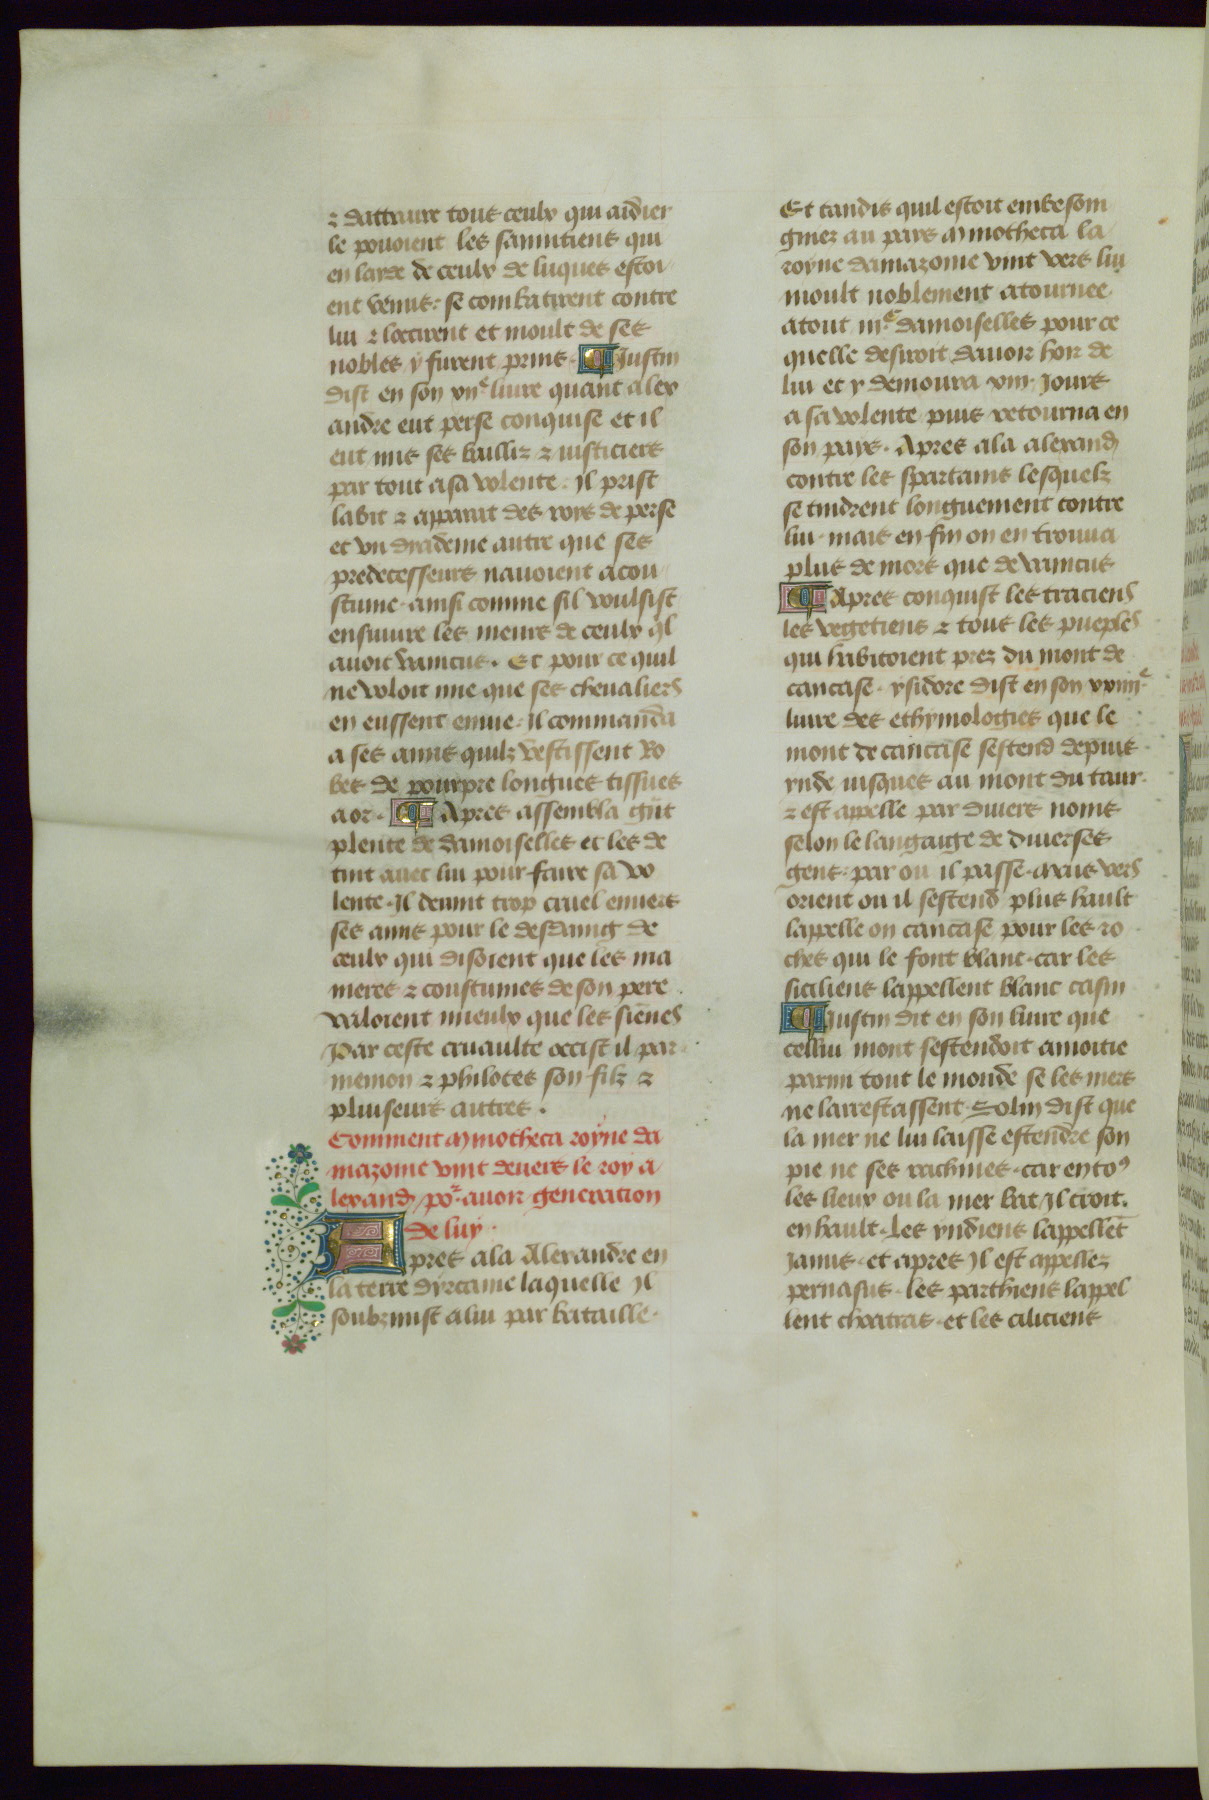 ⁊ dattraire tous ceulx qui aidier
le pouoient les samnitiens qui
en layde de ceulx de luques estoi
ent venus. se combatirent contre
lui ⁊ loccirent et moult de ses
nobles y furent prins. Justin
dist en son viie liure quant alex
andre eut perse conquise et il
eut mis ses bailliz ⁊ iusticiers
par tout a sa volente. Il prist
labit ⁊ apparat des roys de perse
et vn dyademe autre que ses
predecesseurs nauoient acou
stume. ainsi comme sil voulsist
ensuiure les meurs de ceulx ql
auoit vaincus. Et pour ce quil
ne voloit mie que ses cheualiers
en eussent enuie. il commanda
a ses amis quilz vestissent ro
bes de pourpre longues tissues
a or. Apres assembla gnt
plente de damoiselles et les de
tint auec lui pour faire sa vo
lente. Il deuint trop cruel enuers
ses amis pour le desdaing de
ceulx qui disoient que les ma
nieres ⁊ coustumes de son pere
valoient mieulx que les siēnes
Par ceste cruaulte occist il par
menion ⁊ philotes son filz ⁊
pluiseurs autres.
Comment mynotheca royne da
mazonie vint deuers le roy a
lexand por auoir generacion
de luy.
Apres ala Alexandre en
la terre dyrcanie laquelle Il
soubzmist a lui par bataille.
Et tandis quil estoit embesoin
gniez au pays mynotheca la
royne damazonie vint vers lui
moult noblement atournee
atout iiic damoiselles pour ce
quelle desiroit dauoir hoir de
lui et y demoura viii. Jours
a sa volente puis retourna en
son pays. Apres ala alexand
contre les spartains lesquelz
se tindrent longuement contre
lui. mais en fin on en trouua
plus de mors que de vaincus
Apres conquist les traciens
les vegetiens ⁊ tous les pueples
qui habitoient prez du mont de
caucase. ysidore dist en son xiiiie
liure des ethymologies que le
mont de caucase sestend depuis
ynde iusques au mont du taur.
⁊ est appelle par diuers noms
selon le langaige de diuerses
gens. par ou il passe. Mais vers
orient ou il sestend plus hault
lappelle on caucase pour les ro
ches qui le font blanc. car les
siciliens lappellent blanc casin
Justin dit en son liure que
cellui mont sestendoit a moitie
parmi tout le monde se les mers
ne larrestassent. Solin dist que
la mer ne lui laisse estendre son
pie ne ses rachines. car en to9
les lieux ou la mer bat Il croit.
en hault. Les yndiens lappellēt
Janus. et apres Il est appellez
pernasus. les parthiens lappel
lent choatras. et les ciliciens